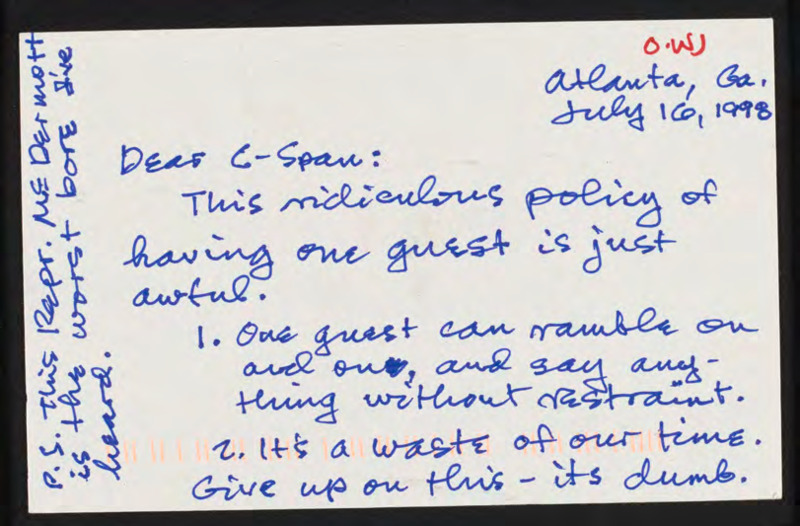 O.WJ
Atlanta, Ga.
July 16, 1998
Dear C-Span:
This ridiculous policy of
having one guest is just
awful.
1. One guest can ramble on
and on, and say any-
thing without restraint.
2. It's a waste of our time.
Give up on this - its dumb.
P.S. This Repr. McDermott
is the worst bore I've
heard.